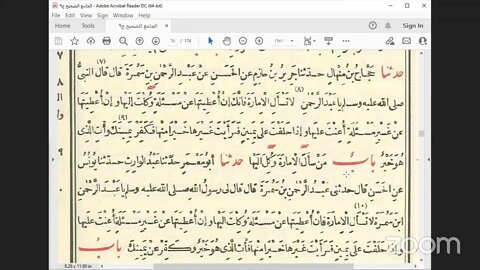 الجامع الصحيح ج٩ - Adobe Acrobat Reader DC (64-bit)
File Edit View Sign Window Help
Home Tools
الجامع الصحيح ج٩
Sign In
(٧)
حدثنا حجاج بن منهال حدثنا جرير بن حازم عن الحسن عن عبد الرحمن بن سمرة قال قال النبى
(٨)
صلى الله عليه وسلم يا عبد الرحمن لا تسأل الامارة فانك إن أعطيتها عن مسئلة وكلت إليها وإن أعطيتها
(٩)
عن غير مسئلة أعنت عليها وإذا حلفت على يمين فرأيت غيرها خيرا منها فكفر يمينك وأت الذى
هو خير باب من سأل الامارة وكل إليها حدثنا أبو معمر حدثنا عبد الوارث حدثنا يونس
عن الحسن قال حدثنى عبد الرحمن بن سمرة قال قال لى رسول الله صلى الله عليه وسلم يا عبد الرحمن
(١٠)
ابن سمرة لا تسأل الامارة فان أعطيتها عن مسئلة وكلت إليها وإن أعطيتها عن غير مسئلة أعنت عليها
حلفت على يمين فرأيت غيرها خيرا منها فأت الذى هو خير وكفر عن يمينك باب
8.26 x 11.69 in
zoom